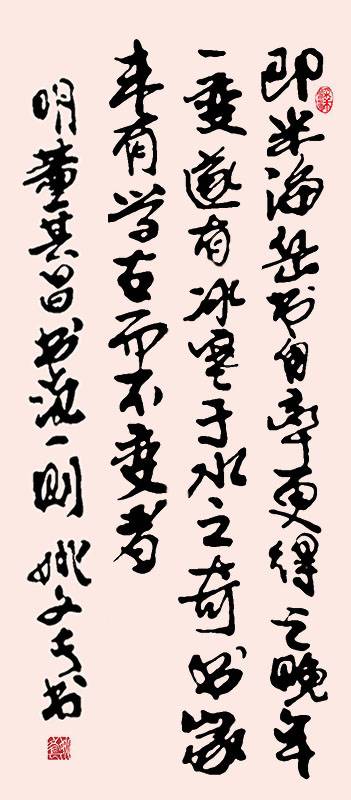 即米海岳书自率更得之晚年
一变遂有冰寒于水之奇书家
未有学古而不变者
明董其昌书说一则 姚文书